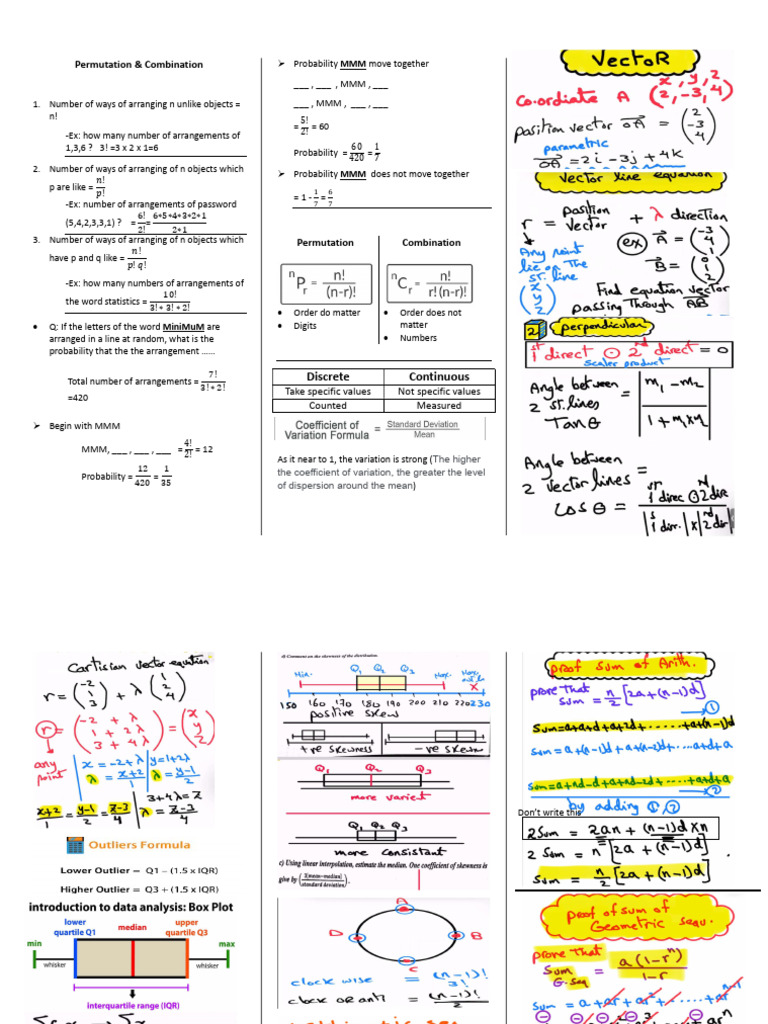 Permutation & Combination
1. Number of ways of arranging n unlike objects =
n!
-Ex: how many number of arrangements of
1,3,6 ? 3! =3 x 2 x 1=6
2. Number of ways of arranging of n objects which
p are like = n!/p!
-Ex: number of arrangements of password
(5,4,2,3,3,1) ? = 6!/2! = 6*5*4*3*2*1/2*1
3. Number of ways of arranging of n objects which
have p and q like = n!/p! q!
-Ex: how many numbers of arrangements of
the word statistics = 10!/3! * 3! * 2!
• Q: If the letters of the word MiniMuM are
arranged in a line at random, what is the
probability that the the arrangement ......
Total number of arrangements = 7!/3! * 2!
=420
➢ Begin with MMM
MMM, ___ , ___ , ___ , ___ = 4!/2! = 12
Probability = 12/420 = 1/35
➢ Probability MMM move together
___ , ___ , MMM , ___
___ , MMM , ___ , ___
= 5!/2! = 60
Probability = 60/420 = 1/7
➢ Probability MMM does not move together
= 1 - 1/7 = 6/7
Permutation Combination
nPr = n!/(n-r)! nCr = n!/r!(n-r)!
• Order do matter
• Digits
• Order does not
matter
• Numbers
Discrete Continuous
Take specific values Not specific values
Counted Measured
Coefficient of
Variation Formula = Standard Deviation/Mean
As it near to 1, the variation is strong (The higher
the coefficient of variation, the greater the level
of dispersion around the mean)
VectoR
x, y, z
Co.ordiate A (2, -3, 4)
position vector OA = (2 -3 4)
parametric
OA = 2i - 3j + 4k
Vector line equation
r = position vector + λ direction
Any point
lie on The
st. line
(x y z)
ex A = (-3 4 1)
B = (0 1 2)
Find equation vector
passing Through AB
2 perpendicular
1st direct ⊙ 2nd direct = 0
scaler product
Angle between
2 st. lines
Tan θ = |m1 - m2 / 1 + m1 x m2|
Angle between
2 vector lines =
cos θ = 1st direc ⊙ 2nd dire / |1st dir.| x |2nd dir|
Cartisian vector equation
r = (-2 1 3) + λ (1 2 4)
r = (-2 + λ 1 + 2λ 3 + 4λ) = (x y z)
any
point
x = -2 + λ
λ = x+2/1
y = 1 + 2λ
λ = y-1/2
3 + 4λ = z
λ = z-3/4
x+2/1 = y-1/2 = z-3/4
Outliers Formula
Lower Outlier = Q1 – (1.5 x IQR)
Higher Outlier = Q3 + (1.5 x IQR)
introduction to data analysis: Box Plot
lower
quartile Q1
median
upper
quartile Q3
min
max
whisker
whisker
interquartile range (IQR)
d) Comment on the skewness of the distribution.
Min. Q1 Q2 Q3 Max.
150 160 170 180 190 200 210 220 230
positive skew
+ve skewness -ve skewness
Q1 Q2 Q3
more varient
Q1 Q2 Q3
more consistant
c) Using linear interpolation, estimate the median. One coefficient of skewness is
given by
A
D
B
C
clock wise = (n-1)!
clock OR anti = (n-1)!/2
proof sum of Arith.
prove That
sum = n/2 [2a + (n-1)d]
①
Sum = a + a+d + a+2d + ...... + a+(n-1)d
Sum = a+(n-1)d + a+(n-2)d + ..... + a+d + a
Sum = a+nd-d + a+nd-2d + ..... + a+d+a
②
by adding ①, ②
Don't write this
2 Sum = 2an + (n-1)d x n
2 Sum = n [2a + (n-1)d]
Sum = n/2 [2a + (n-1)d]
proof of sum of
Geometric sequ.
prove That
Sum G.seq = a(1-r^n)/1-r
Sum = a + ar + ar² + ..... + ar^n-1